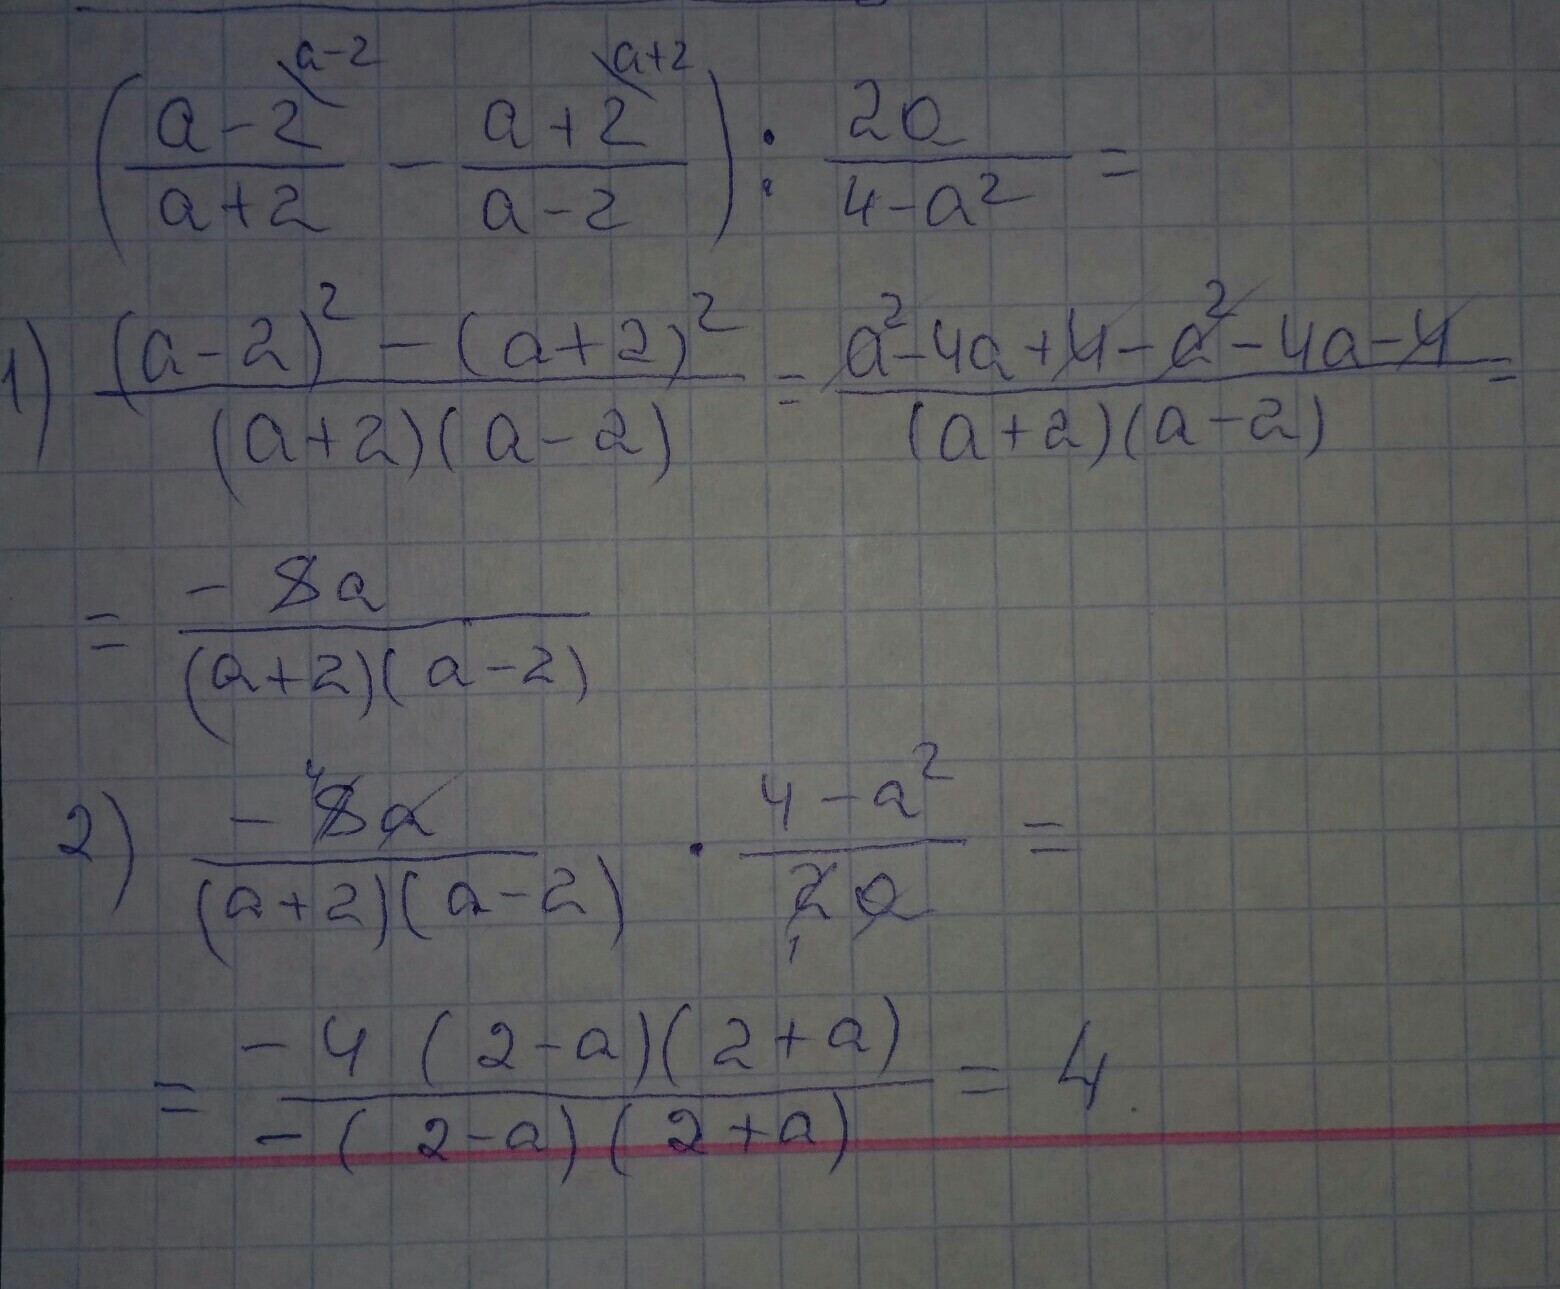 ( (a-2)/(a+2) ^(a-2) - (a+2)/(a-2) ^(a+2) ) : 2a/(4-a²) =
1) ((a-2)² - (a+2)²)/((a+2)(a-2)) = (a²-4a+4-a²-4a-4)/((a+2)(a-2)) =
= -8a/((a+2)(a-2))
2) -8a/((a+2)(a-2)) · (4-a²)/(2a) =
= -4(2-a)(2+a)/(-(2-a)(2+a)) = 4.